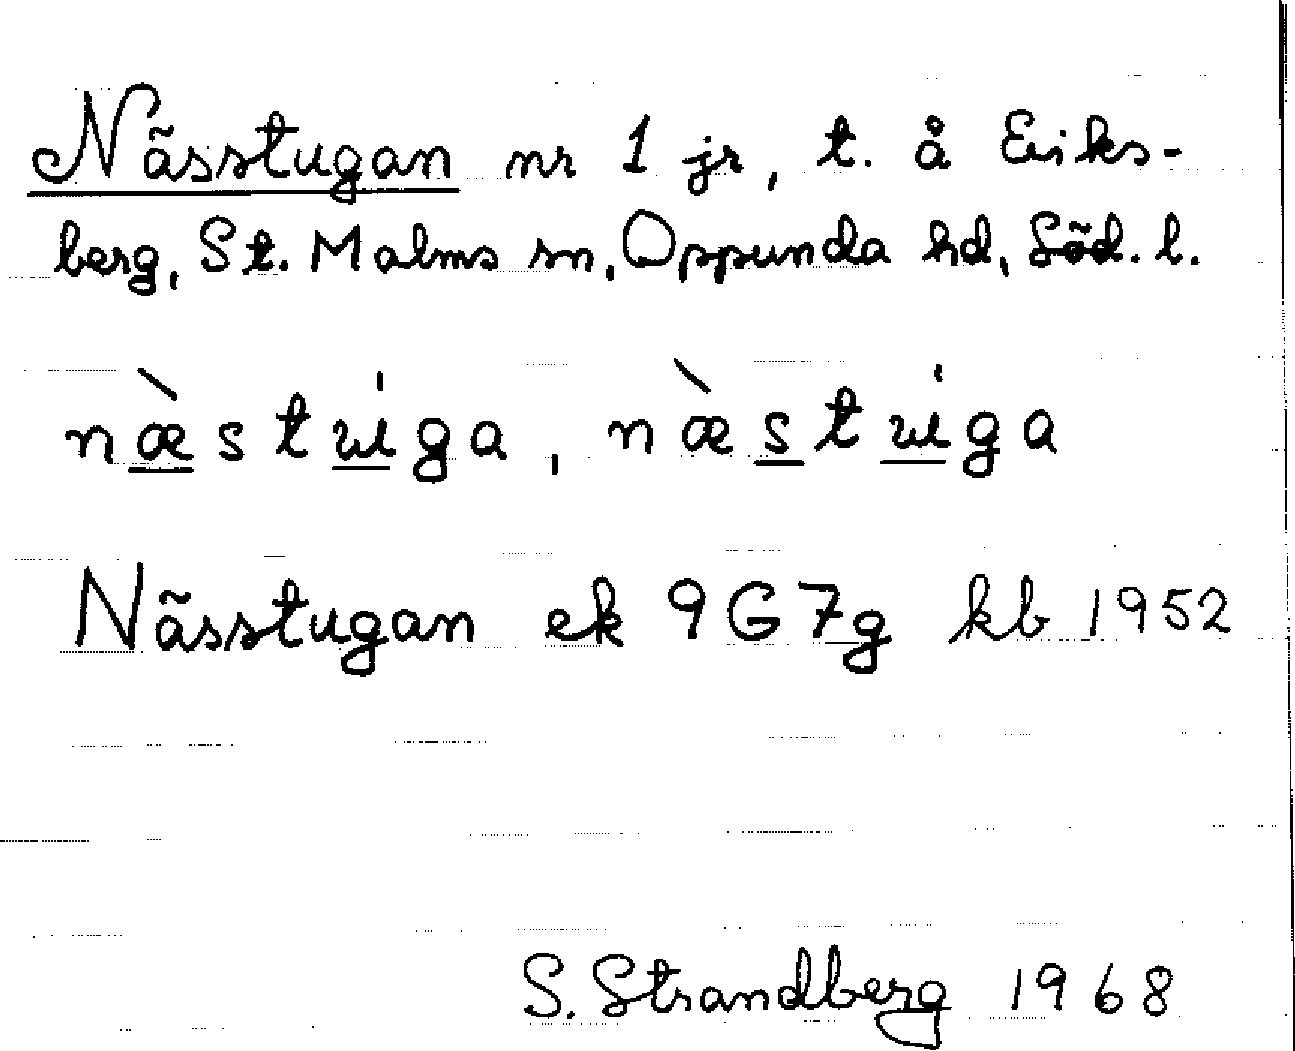 Nässtugan nr 1 jr, t. å Eriks-
berg, St. Malms sn, Oppunda hd, Söd. l.
næ̀stu̍ga, næ̀stu̍ga
Nässtugan ek 9G7g kb 1952
S. Strandberg 1968